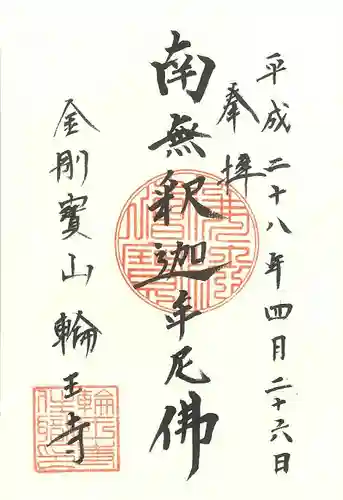 平成二十八年四月二十六日
奉拝
南無釈迦牟尼佛
金剛寶山輪王寺